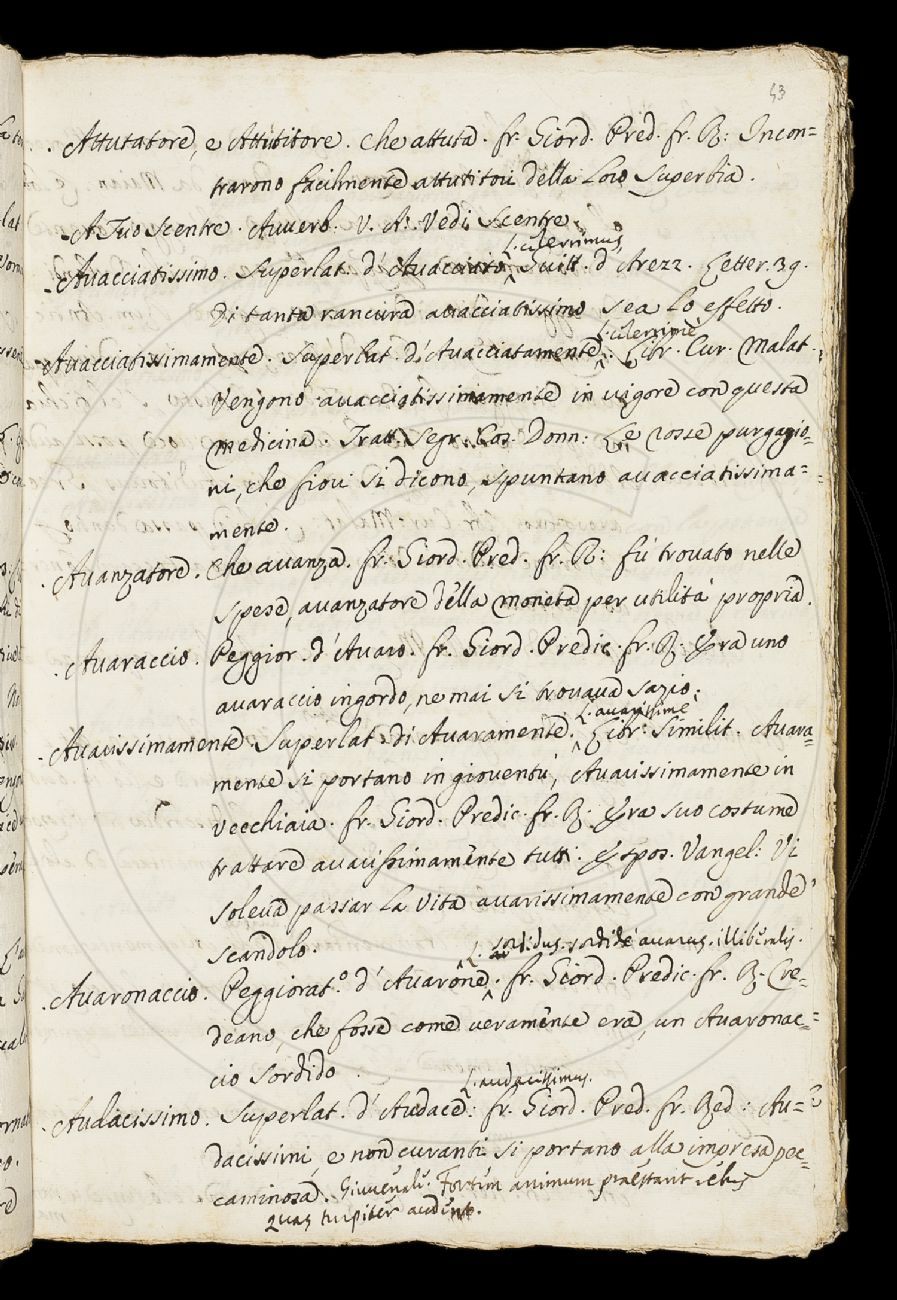 53
Attutatore, e Attutitore. Che attuta. fr. Giord. Pred. fr. R: Incon=
trarono facilmente attutitori della Loro Superbia.
A Tuo Scentre. Avverb. V. A: Vedi Scentre.
L. celerrimus
Avacciatissimo. Superlat. d'Avacciato. Guitt. d'Arezz. Letter. 39.
Di tanta rancura avacciatissimo sea lo effetto.
L. celerrime
Avacciatissimamente. Superlat. di Avacciatamente: Libr. Cur. Malat.
Vengono avacciatissimamente in vigore con questa
medicina. Tratt. Segr. Cos. Donn: Le rosse purgagio=
ni, che fiori si dicono, spuntano avacciatissima=
mente.
Avanzatore. Che avanza. fr. Giord. Pred. fr. R: fù trovato nelle
Spese, avanzatore della moneta per utilità propria.
Avaraccio. Peggior. d'Avaro. fr. Giord. Predic. fr. R. Era uno
avaraccio ingordo, ne mai si trovava sazio.
L. avarissime
Avarissimamente Superlat. di Avaramente. Libr: Similit. Avara=
mente si portano in gioventù, Avarissimamente in
vecchiaia. fr. Giord. Predic. fr. R. Era suo costume
trattare avarissimamente tutti. Espos. Vangel: Vi
soleva passar la vita avarissimamente con grande
scandolo.
L. sordidus. sordidè avarus. illiberalis.
Avaronaccio. Peggiorat.º d'Avarone. fr. Giord. Predic. fr. R. Cre=
deano, che fosse come veramente era, un Avaronac=
cio sordido.
L. audacissimus.
Audacissimo. Superlat. d'Audace: fr. Giord. Pred. fr. Red: Au=
dacissimi, e non curanti si portano alla impresa pec=
caminosa. Giuvenal: Fortem animum praestant rebus
quas turpiter audent.